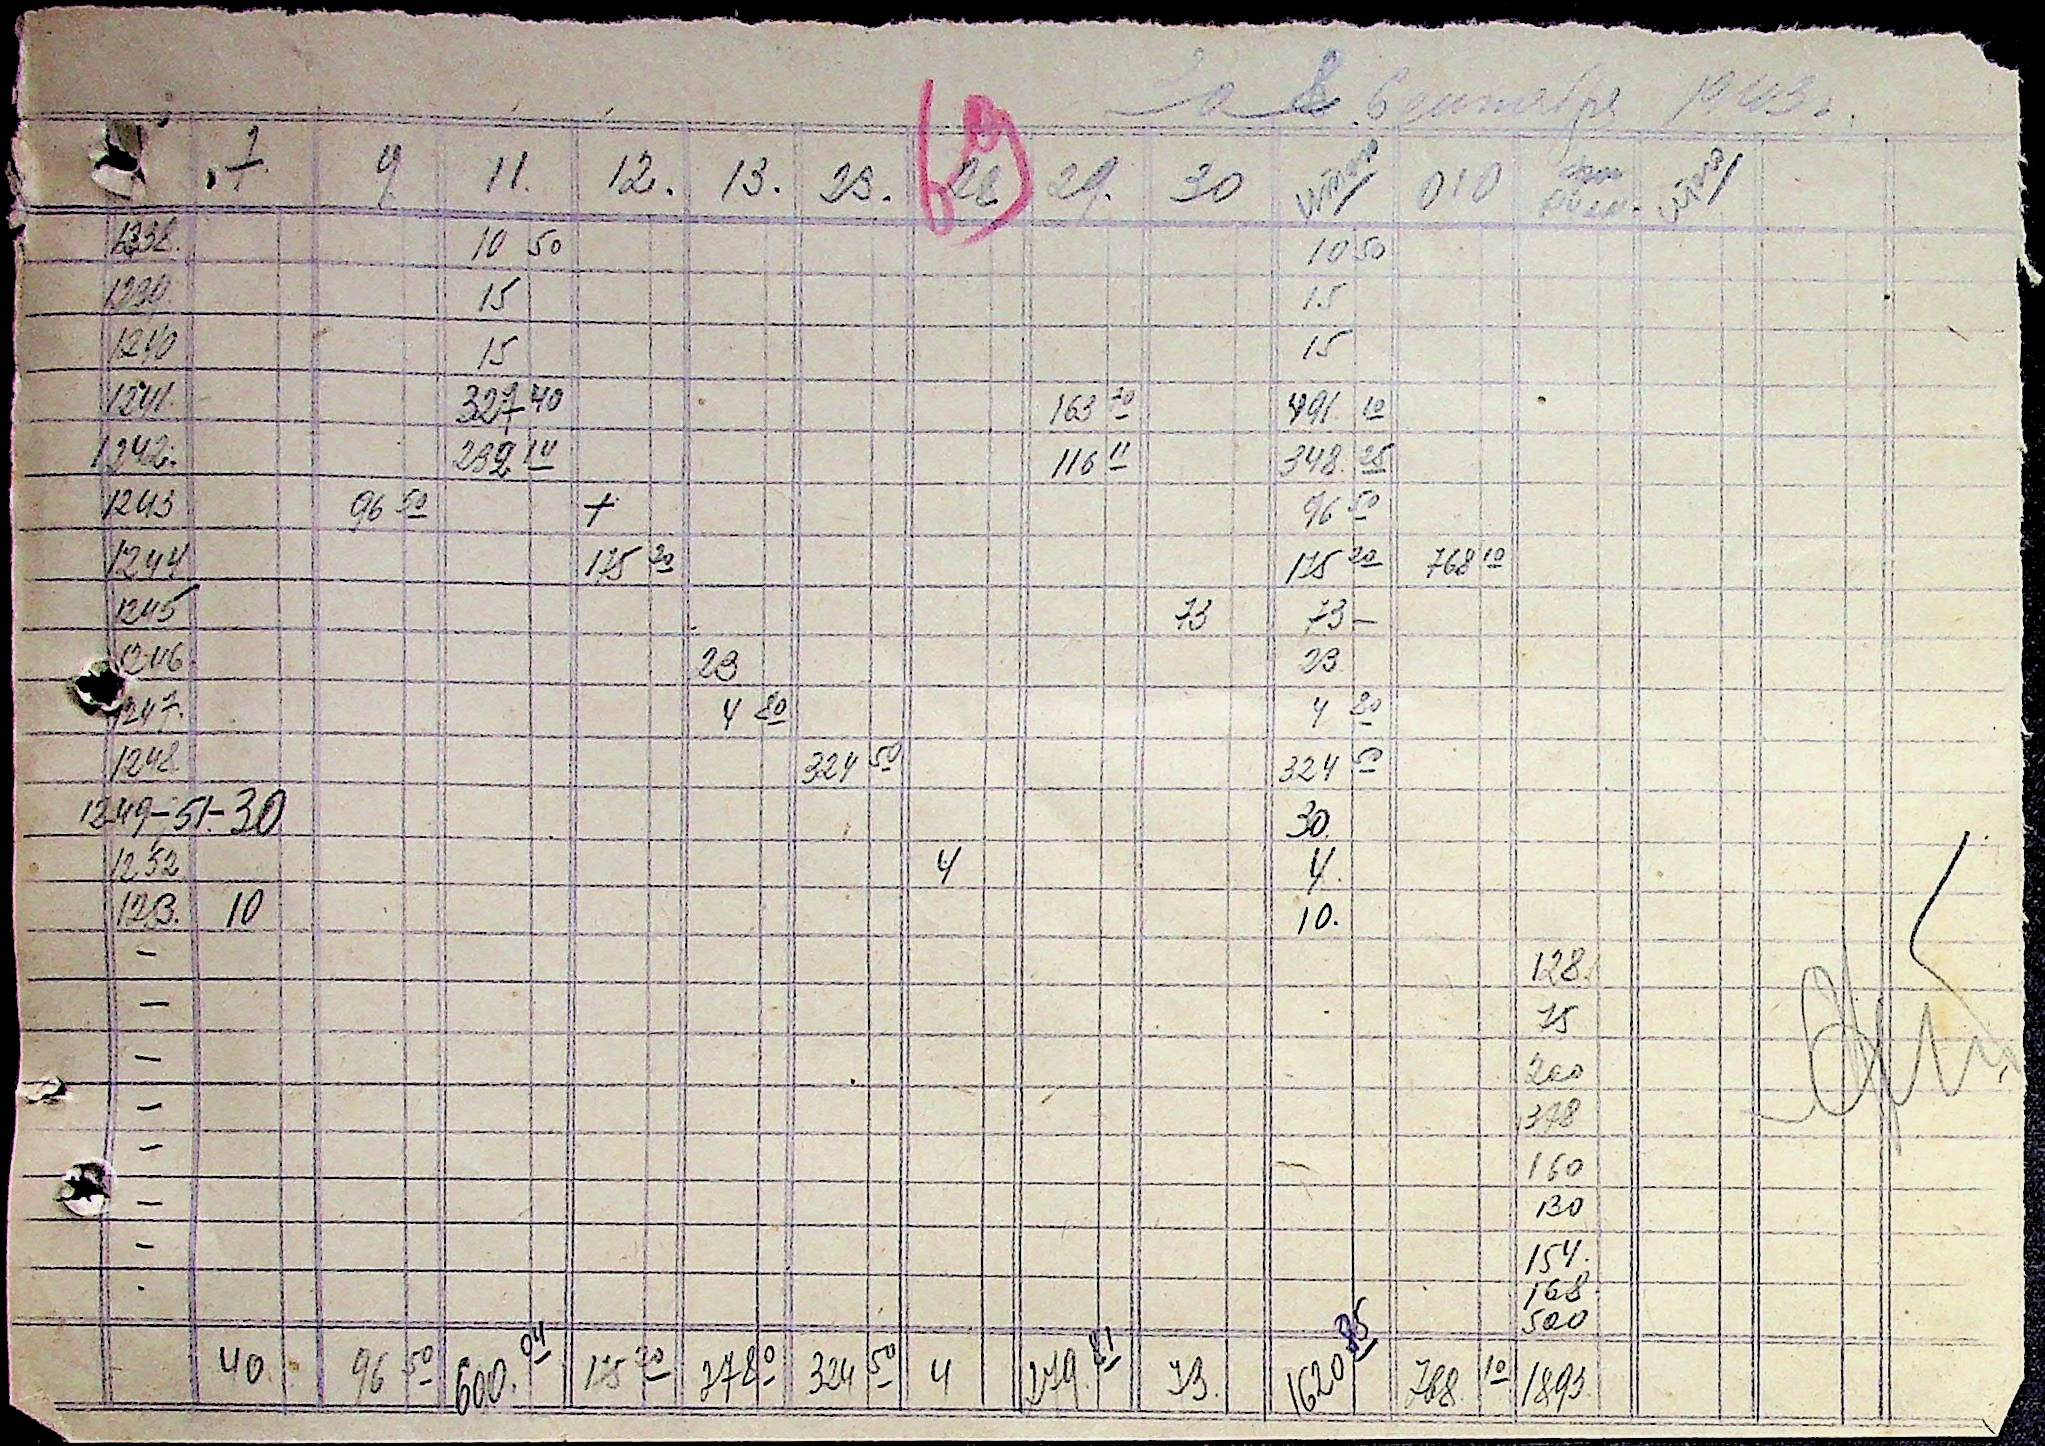 За 8. Сентябрь 1943 г.
7. 9 11. 12. 13. 23. 28 29. 30 итого 010 итого
1238. 10 50 10 50
1239. 15 15
1240 15 15
1241. 327 40 163 70 491. 10
1242. 232 14 116 11 348. 25
1243 96 50 + 96 50
1244 175 20 175 20 768 10
1245 73 73 –
1246 23 23
1247. 4 80 4 80
1248 324 50 324 50
1249–51–30 30.
1252 4 4.
1253. 10 10.
– 128.
– 75
– 200
– 378
– 160
– 130
– 154.
168
500
40 96 50 600. 04 175 20 27 80 324 50 4 279. 81 73. 1620 85 768. 10 1893